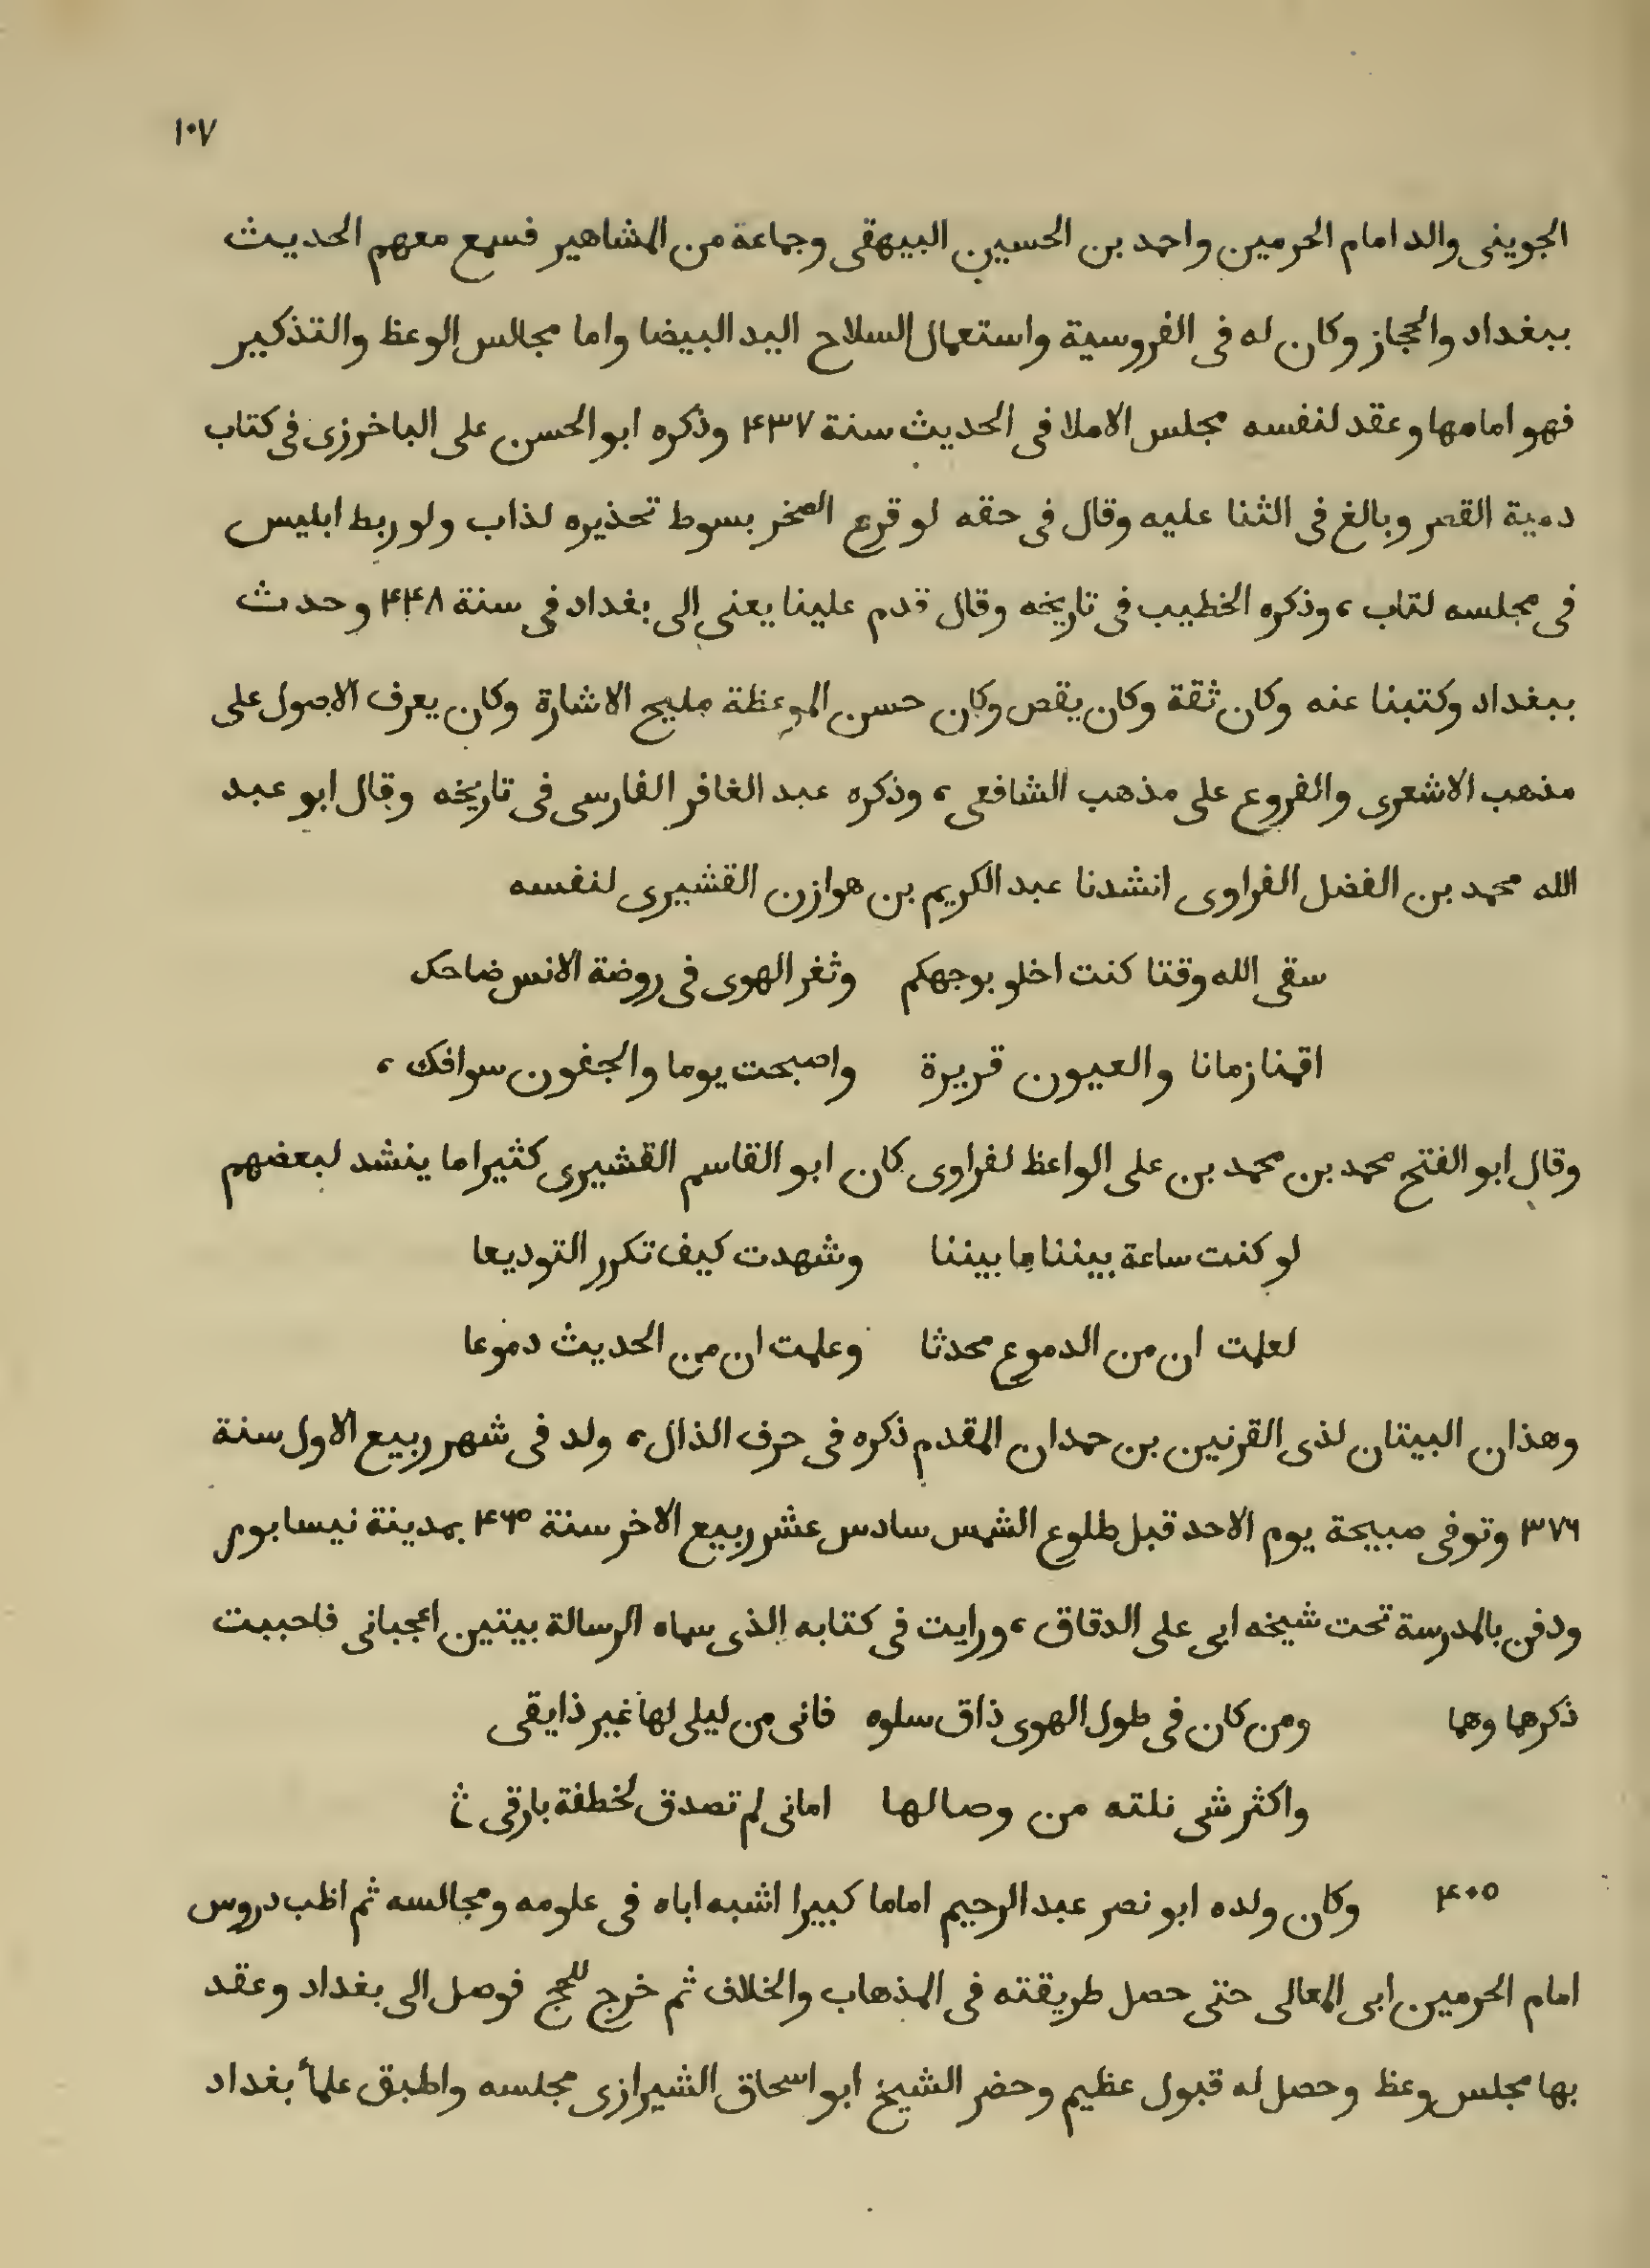 ١٠٧
الجوينى والد امام الحرمين واحمد بن الحسين البيهقى وجماعة من المشاهير فسمع معهم الحديث
ببغداد والحجاز وكان له فى الفروسية واستعمال السلاح اليد البيضا واما مجالس الوعظ والتذكير
فهو امامها وعقد لنفسه مجلس الاملا فى الحديث سنة ۴۳۷ وذكره ابو الحسن على الباخرزى فى كتاب
دمية القصر وبالغ فى الثنا عليه وقال فى حقه لو قرع الصخر بسوط تحذيره لذاب ولو ربط ابليس
فى مجلسه لتاب ، وذكره الخطيب فى تاريخه وقال قدم علينا يعنى الى بغداد فى سنة ۴۴۸ وحدث
ببغداد وكتبنا عنه وكان ثقة وكان يقص وكان حسن الموعظة مليح الاشارة وكان يعرف الاصول على
مذهب الاشعرى والفروع على مذهب الشافعى ، وذكره عبد الغافر الفارسى فى تاريخه وقال ابو عبد
الله محمد بن الفضل الفراوى انشدنا عبد الكريم بن هوازن القشيرى لنفسه
سقى الله وقتا كنت اخلو بوجهكم وثغر الهوى فى روضة الانس ضاحك
اقمنا زمانا والعيون قريرة واصبحت يوما والجفون سوافك ،
وقال ابو الفتح محمد بن محمد بن على الواعظ لفراوى كان ابو القاسم القشيرى كثيرا ما ينشد لبعضهم
لو كنت ساعة بيننا ما بيننا وشهدت كيف تكرر التوديعا
لعلمت ان من الدموع محدثا وعلمت ان من الحديث دموعا
وهذان البيتان لذى القرنين بن حمدان المقدم ذكره فى حرف الذال ، ولد فى شهر ربيع الاول سنة
۳۷۶ وتوفى صبيحة يوم الاحد قبل طلوع الشمس سادس عشر ربيع الاخر سنة ۴۶۵ بمدينة نيسابور
ودفن بالمدرسة تحت شيخه ابى على الدقاق ، ورايت فى كتابه الذى سماه الرسالة بيتين اعجبانى فاحببت
ذكرهما وهما ومن كان فى طول الهوى ذاق سلوه فانى من ليلى لها غير ذايقى
واكثر شى نلته من وصالها امانى لم تصدق لخطفة بارقى
۴۰۵ وكان ولده ابو نصر عبد الرحيم اماما كبيرا اشبه اباه فى علومه ومجالسه ثم اظب دروس
امام الحرمين ابى المعالى حتى حصل طريقته فى المذهاب والخلاف ثم خرج للحج فوصل الى بغداد وعقد
بها مجلس وعظ وحصل له قبول عظيم وحضر الشيخ ابو اسحاق الشيرازى مجلسه واطبق علمأ بغداد